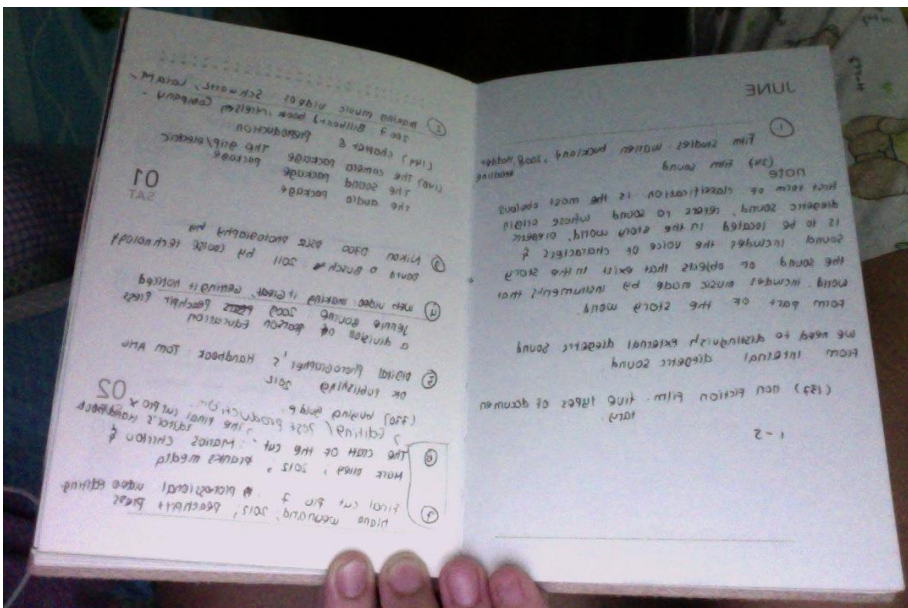 JUNE
1
Film studies warren buckland, 2008, Hodder
note
reading
(24) Film sound
first form of classification is the most obvious
diegetic sound, refers to sound whose origin
is to be located in the story world, diegetic
sound includes the voice of characters &
the sound of objects that exist in the story
world. includes music made by instruments that
form part of the story world.
we need to distinguish external diegetic sound
from internal diegetic sound
(137) non fiction film. five types of documen
tary
1-5
2 making music videos: Schwartz, Lara M.
2007 Billboard book, Company
(141) chapter 8 Preproduction
(147) the camera package The grip/electric
The sound package package
the audio package
01
SAT
3 Nikon D700 photography by
David D Busch 2011 by course technology
4 web video: making it Great, Getting it noticed
Jennie Bourne 2009 Peachpit Press
a division of pearson Education
5 Digital photographer's Handbook: Tom Ang
DK publishing 2012
02
(370) buying guide
7 Editing / Post production The Final cut Pro X
editor's Handbook
6 The craft of the cut: 
2012,
7 Final cut pro 7 professional video editing
Diana weynand, 2012, Peachpit press